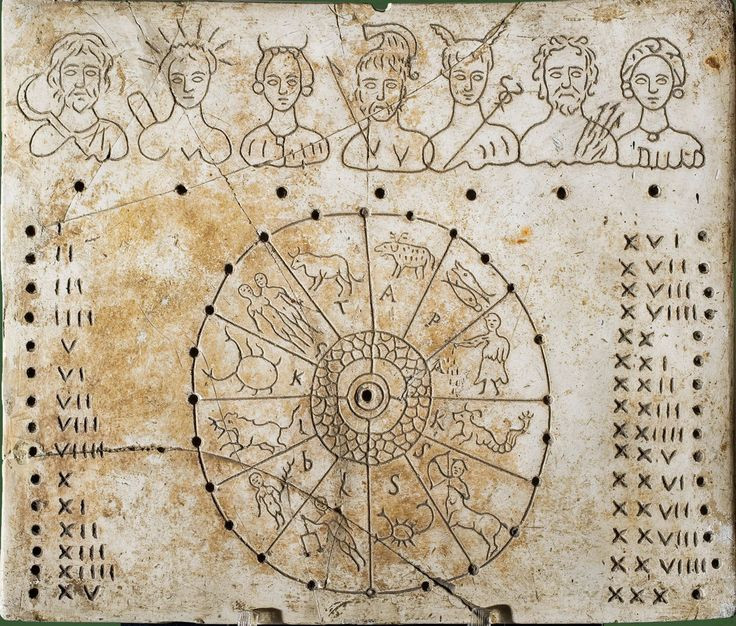 I
II
III
IIII
V
VI
VII
VIII
VIIII
X
XI
XII
XIII
XIIII
XV
A
T
K
L
b
L
S
S
K
P
XVI
XVII
XVIII
XVIIII
XX
XXI
XXII
XXIII
XXIIII
XXV
XXVI
XXVII
XXVIII
XXVIIII
XXX